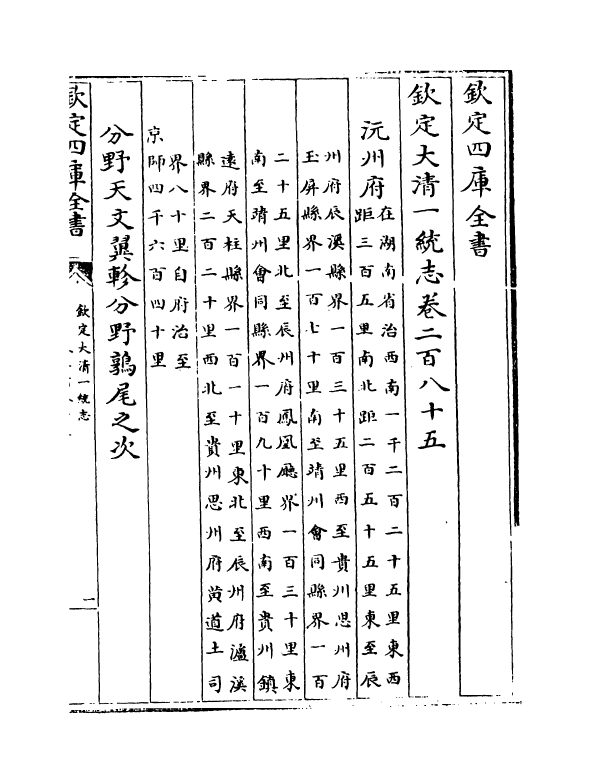 欽定四庫全書
欽定大清一統志卷二百八十五
沅州府
在湖南省治西南一千二百二十五里東西
距三百五里南北距二百五十五里東至辰
州府辰溪縣界一百三十五里西至貴州思州府
玉屏縣界一百七十里南至靖州會同縣界一百
二十五里北至辰州府鳳凰廳界一百三十里東
南至靖州會同縣界一百九十里西南至貴州鎮
遠府天柱縣界一百一十里東北至辰州府瀘溪
縣界二百二十里西北至貴州思州府黄道土司
界八十里自府治至
京師四千六百四十里
分野天文翼軫分野鶉尾之次
欽定四庫全書
欽定大清一統志
一